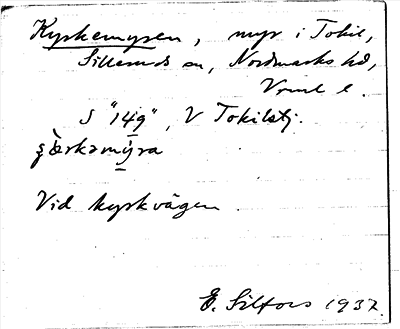 Kyrkemyren, myr i Tokil,
Silleruds sn, Nordmarks hd,
Vrml l.
S "149", V Tokilstj.
Vid kyrkvägen
E. Silfors 1937